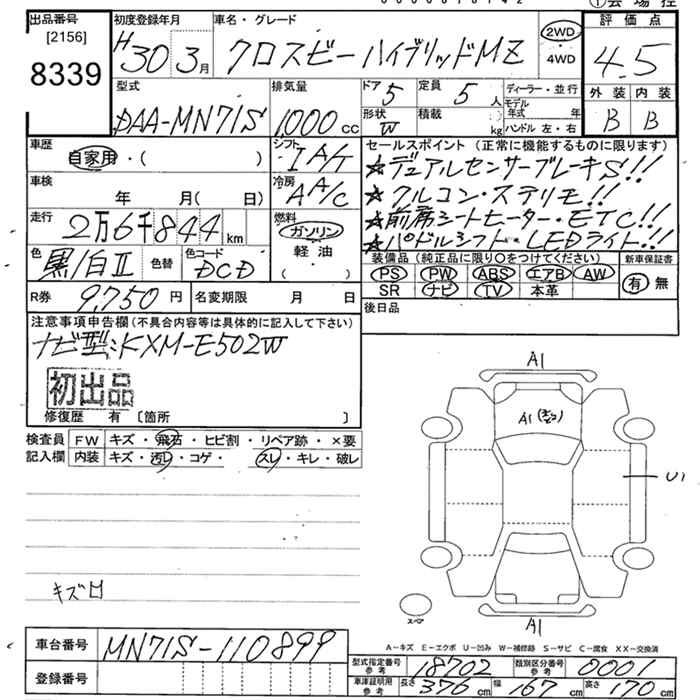 出品番号 初度登録年月 車名・グレード 評価点
[2156] 8339 H30 3月 クロスビー ハイブリッドMZ 2WD 4WD 4.5
型式 排気量 ドア 5 定員 5人 ディーラー・並行 外装 内装
DAA-MN71S 1,000cc 形状 W 積載 kg モデル年式 年 ハンドル 左・右 B B
車歴 自家用・( ) シフト IA/T セールスポイント (正常に機能するものに限ります)
★デュアルセンサーブレーキS!!
車検 年 月( 日) 冷房 AA/C ★クルコン・ステリモ!!
走行 2万6千844km 燃料 ガソリン 軽油 ★前席シートヒーター・ETC!!
★パドルシフト・LEDライト!!
色 黒/白II 色替 色コード DCD 装備品 (純正品に限り○をつけてください) 新車保証書
PS PW ABS エアB AW 有 無
R券 9,750円 名変期限 月 日 SR ナビ TV 本革
後日品
注意事項申告欄(不具合内容等は具体的に記入して下さい)
ナビ型:KXM-E502W
初出品
修復歴 有 [箇所 ]
検査員 FW キズ・飛石・ヒビ割・リペア跡・×要
記入欄 内装 キズ・汚レ・コゲ・ スレ・キレ・破レ
A1
A1
U1
キズ
スペア
A1
A-キズ E-エクボ U-凹み W-補修跡 S-サビ C-腐食 XX-交換済
車台番号 MN71S-110899 型式指定番号 参考 18702 類別区分番号 参考 0001
登録番号 車庫証明用 参考 長さ 376cm 幅 167cm 高さ 170cm